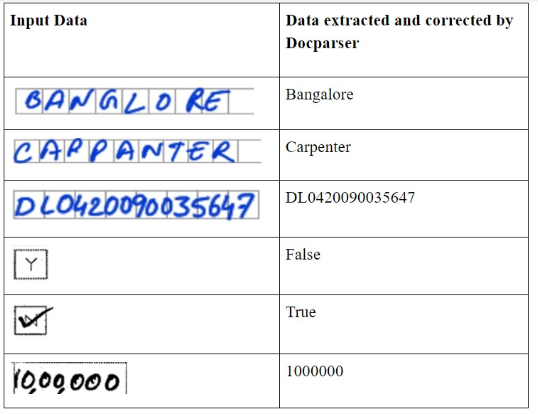 Input Data
Data extracted and corrected by
Docparser
BANGLORE
Bangalore
CARPANTER
Carpenter
DL0420090035647
DL0420090035647
Y
False
True
10,00,000
1000000